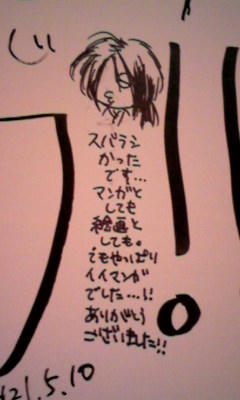 スバラシ
かった
です…
マンガと
しても
絵画と
しても。
でもやっぱり
イイマンガ
でした…!!
ありがとう
ございました!!
21.5.10